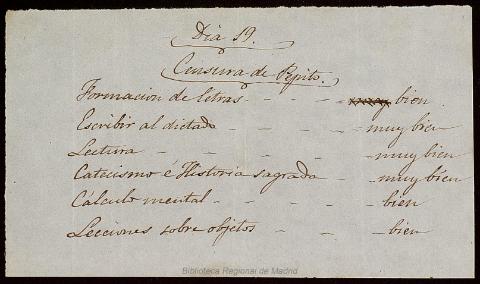 Dia 19.
Censura de Pepito.
Formacion de letras - - - bien
Escribir al dictado - - - - muy bien
Lectura - - - - - muy bien
Catecismo é Historia sagrada - - muy bien
Cálculo mental - - - - bien
Lecciones sobre objetos - - - bien
Biblioteca Regional de Madrid